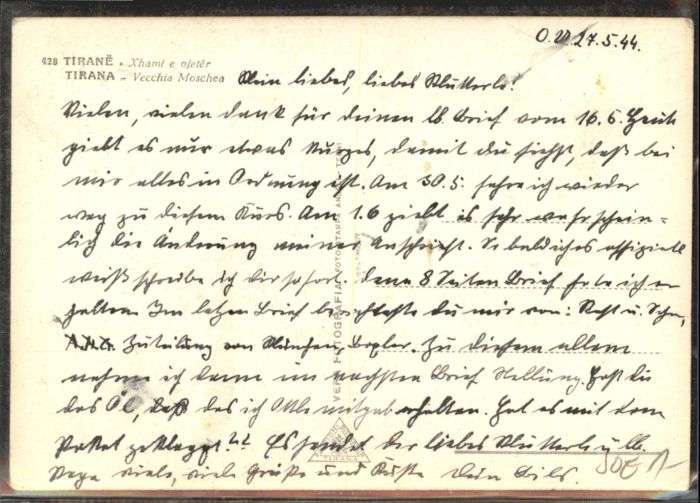 O.U. 27.5.44.
428 TIRANË - Xhami e vjetër
TIRANA - Vecchia Moschea
Mein liebes, liebes Mutterli!
Vielen, vielen dank für deinen lb. Brief vom 16.5. Heute
giebt es nur etwas Kurzes, damit du siehst, daß bei
mir alles in Ordnung ist. Am 30.5. fahre ich wieder
weg zu diesem Kurs. Am 1.6 giebt es sehr wahrschein=
lich die Änderung meiner Anschrift. Sobald ich es offiziell
weiß schreibe ich dir sofort. 8 Seiten Brief habe ich er
halten. Im Brief du mir von:
Zuteilung von München, Zu diesem allem
nehme ich dann im nächsten Brief Stellung. Hast du
das Öl, daß das ich mitgab erhalten. Hat es mit dem
Paket geklappt?? Es sendet dir liebes Mutterli u. lb.
Papa viele, viele Grüße und Küsse Dein
VERË FOTOGRAFIA
TIRANA